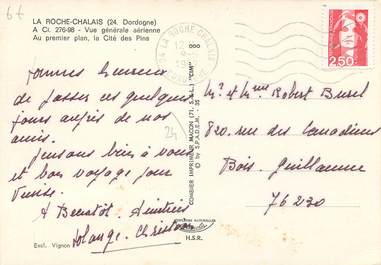 6f
LA ROCHE-CHALAIS (24. Dordogne)
A Ci. 276-98 - Vue générale aérienne
Au premier plan, la Cité des Pins
24 LA ROCHE CHALAIS
2,50
Sommes heureux
de passer ces quelques
jours auprès de nos
amis.
Pensons bien à vous
et bon voyage pour
A Bientôt Amitiés
Solange. Christian
24
COMBIER IMPRIMEUR MACON (71. S.-&-L.) "CIM"
© by S.P.A.D.E.M.
Mr et Mme Robert Burel
820, rue des Canadiens
Bois. Guillaume
76230
Excl. Vignon
COULEURS NATURELLES
H.S.R.